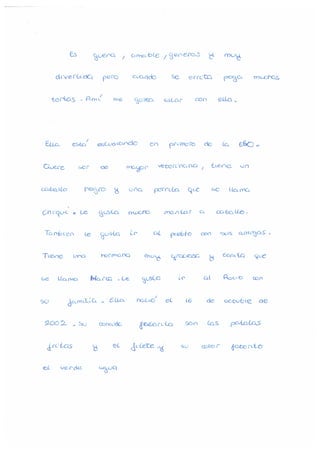 Es guena, amable, generosa y muy
divertida pero cuando se enrita pega muchas
tortas. Ami me gusta estar con ella.
Ella está estudiando en primero de la ESO.
Quere ser de mayor veterinaria, tiene un
caballo negro y una perrita que se llama
chiqui. Le gusta mucho montar a caballo.
Tambien le gusta ir al pueblo con sus amigas.
Tiene una hermana muy graciosa y bonita que
se llama María. Le gusta ir al Rocio con
su familia. Ella nació el 16 de octubre de
2002. Su comida faborita son las patatas
fritas y el filete y su color faborito
el verde agua